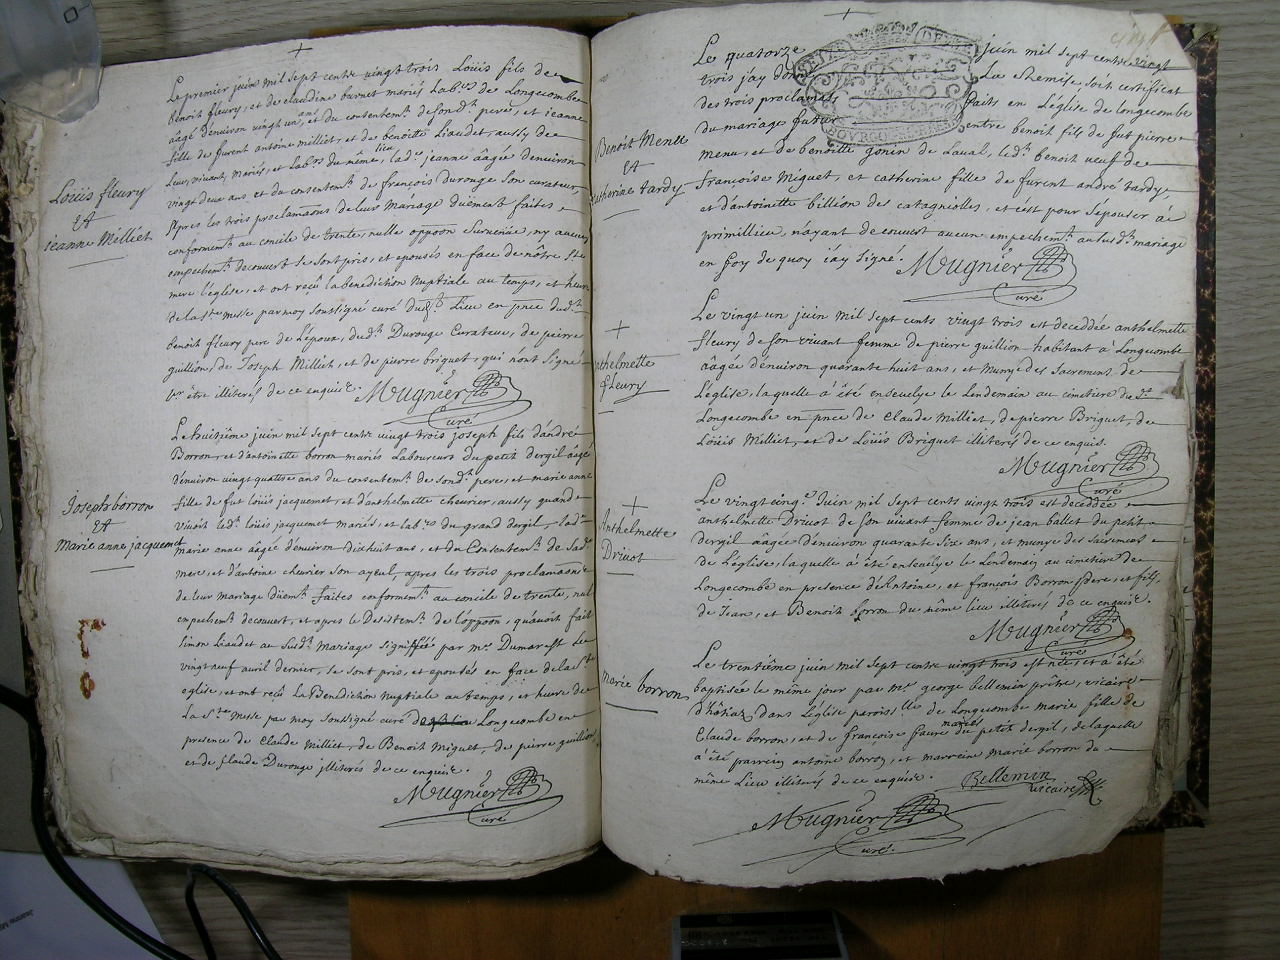 Louïs fleury
Et
jeanne Milliet
Le premier juin mil sept cents vingt trois Louïs fils de
Benoit fleury, et de claudine burnet mariés Lab.rs de Longecombe
âagé denuiron vingt un ans, et du consentem.t desond.t pere, et jeanne
fille de furent antoine milliet, et de benoitte Liaudet, aussy de
Leur vivant, mariés, et Lab.rs du même lieu, lad.e jeanne âagée denuiron
vingt deux ans et du consentem.t de françois durouge son curateur,
Apres les trois proclamaons de leur Mariage düement faites
conformem.t au concile de trente, nulle oppoon Suruenüe, ny aucun
empechem.t decouuert se sont pris, et epousés en face de nôtre S.te
mere l'église, et ont reçú la benediction Nuptiale au temps, et heure
de la S.te messe par moy soussigné curé dud. Lieu en pnce dud.t
benoit fleury pere de L'epoux, du d.t Durouge Curateur, de pierre
guillion, de Joseph Milliet, et de pierre briguet, qui n'ont Signé
p.r être illiterés de ce enquis. Mugnier
Curé
Joseph borron
Et
Marie anne jacquemet
Le huitiême juin mil sept cents vingt trois joseph fils d'andré
Borron, et d'antoinette borron mariés Laboureurs du petit dergil âagé
dénuiron vingt quattre ans du consentem.t de sond.t pere, et marie anne
fille de fut louis jacquemet, et d'anthelmette cheurier, aussy quand
viuoit led.t louis jacquemet mariés, et lab.rs du grand dergil, lad.e
marie anne âagée d'enuiron dixhuit ans, et du Consentem.t de Sad.e
mere, et d'antoine cheurier son ayeul, apres les trois proclamaons
de leur mariage düem.t faites conformem.t au concile de trente, nul
empechem.t decouuert, et apres le Desistem.t de l'oppoon, qu'auoit fait
simon Liaudet au sud.t Mariage signiffiée par m.e Dumarest le
vingt neuf auril dernier, se sont pris, et epousés en face de la S.te
eglise, et ont reçú La Benediction nuptiale au temps, et heure de
La S.te Messe par moy soussigné curé de Longecombe en
presence de Claude Milliet, de Benoit Miguet, de pierre guillion
et de Claude Durouge illiterés de ce enquis.
Mugnier
Curé
Benoit Menu
Et
catherine tardy
Le quatorze juin mil sept cents vingt
trois jay La Remise, soit certificat
des trois proclamaons faits en L'église de longecombe
du mariage futur entre benoit fils de fut pierre
menu, et de benoitte gonin de Laual, led.t benoit veuf de
françoise Miguet, et catherine fille de furent andré tardy
et d'antoinette billion des catagniolles, et c'est pour s'epouser à
primillieu, n'ayant decouuert aucun empechem.t au susd.t mariage
en foy de quoy j'ay signé. Mugnier
Curé
anthelmette
fleury
Le vingt un juin mil sept cents vingt trois est deceddée anthelmette
fleury de son viuant femme de pierre guillion habitant à Longecombe
âagée dénuiron quarante huit ans, et Munye des Sacrements de
L'église, laquelle à été enseuelye le Lendemain au cimetiere de
Longecombe en pnce de Claude Milliet, de pierre Briguet, de
Loüis Milliet, et de Loüis Briguet illiterés de ce enquis.
Mugnier
Curé
Anthelmette
Driuot
Le vingt cinq.e Juin mil sept cents vingt trois est deceddée
anthelmette Driuot de son viuant femme de jean ballet du petit
dergil âagée d'enuiron quarante six ans, et munye des sacrements
de L'église, laquelle à été enseuelye le Lendemain au cimetiere de
Longecombe en presence d'Antoine, et françois Borron pere, et fils,
de Jean, et Benoit borron du même lieu illiterés de ce enquis.
Mugnier
Curé
Marie borron
Le trentiême juin mil sept cents vingt trois est née, et à été
baptisée le même jour par m.re george bellemin prêtre, vicaire
d'hôtiaz dans L'église paroiss.lle de Longecombe marie fille de
Claude borron, et de françoise faure mariés du petit dergil, de laquelle
à été parrein antoine borron, et marreine marie borron du
même Lieu illiterés de ce enquis. Billemin
vicaire
Mugnier
Curé.